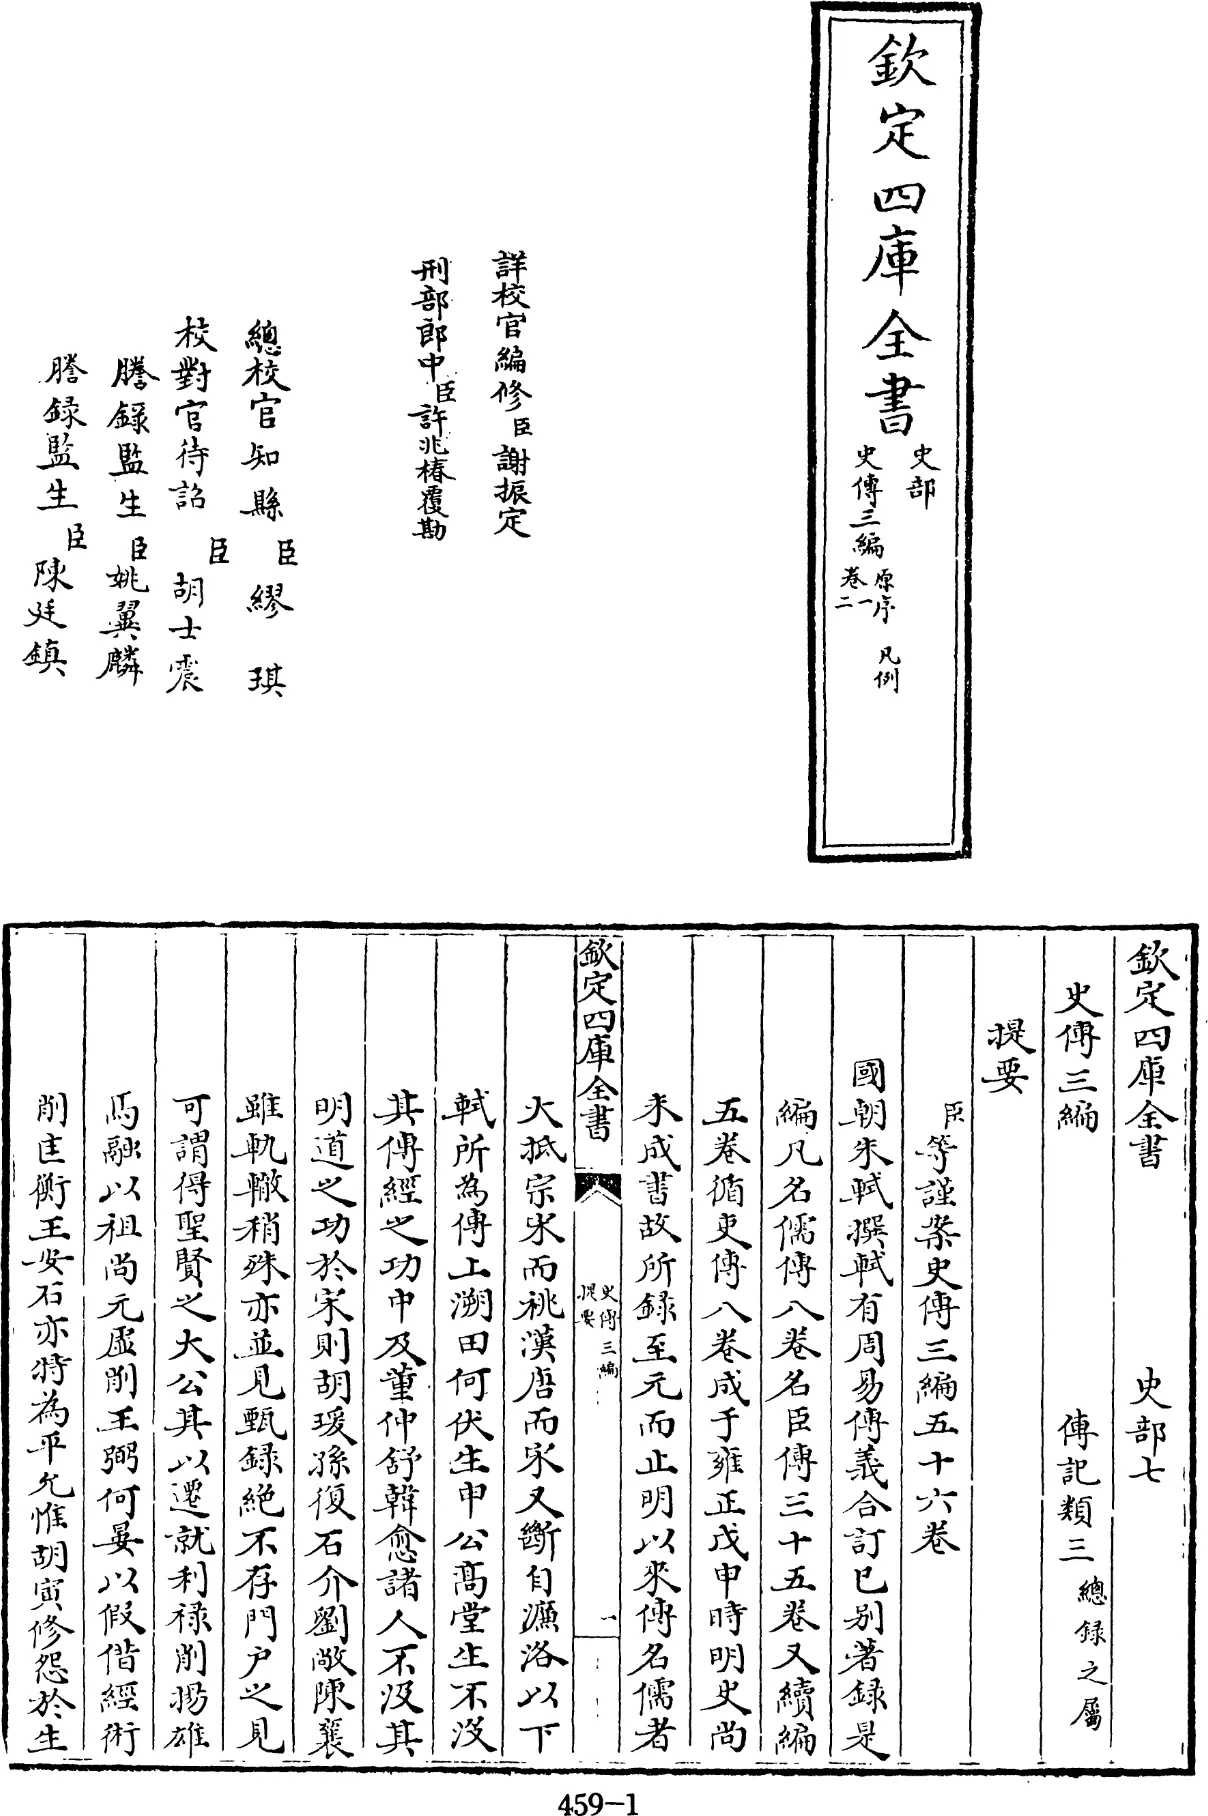 欽定四庫全書
史部
史傳三編
原序 凡例
卷一
二
詳校官編修臣謝振定
刑部郎中臣許兆椿覆勘
總校官知縣臣繆琪
校對官待詔臣胡士震
謄錄監生臣姚翼麟
謄錄監生臣陳廷鎮
欽定四庫全書 史部七
史傳三編 傳記類三 總録之屬
提要
臣等謹案史傳三編五十六卷
國朝朱軾撰軾有周易傳義合訂已别著録是
編凡名儒傳八卷名臣傳三十五卷又續編
五卷循吏傳八卷成于雍正戊申時明史尚
未成書故所録至元而止明以來傳名儒者
欽定四庫全書
史傳三編
提要
一
大抵宗宋而祧漢唐而宋又斷自濂洛以下
軾所為傳上溯田何伏生申公高堂生不沒
其傳經之功中及董仲舒韓愈諸人不沒其
明道之功於宋則胡瑗孫復石介劉敞陳襄
雖軌轍稍殊亦並見甄録絶不存門户之見
可謂得聖賢之大公其以遷就利祿削揚雄
馬融以祖尚元虛削王弼何晏以假借經術
削匡衡王安石亦特為平允惟胡寅修怨於生
459-1